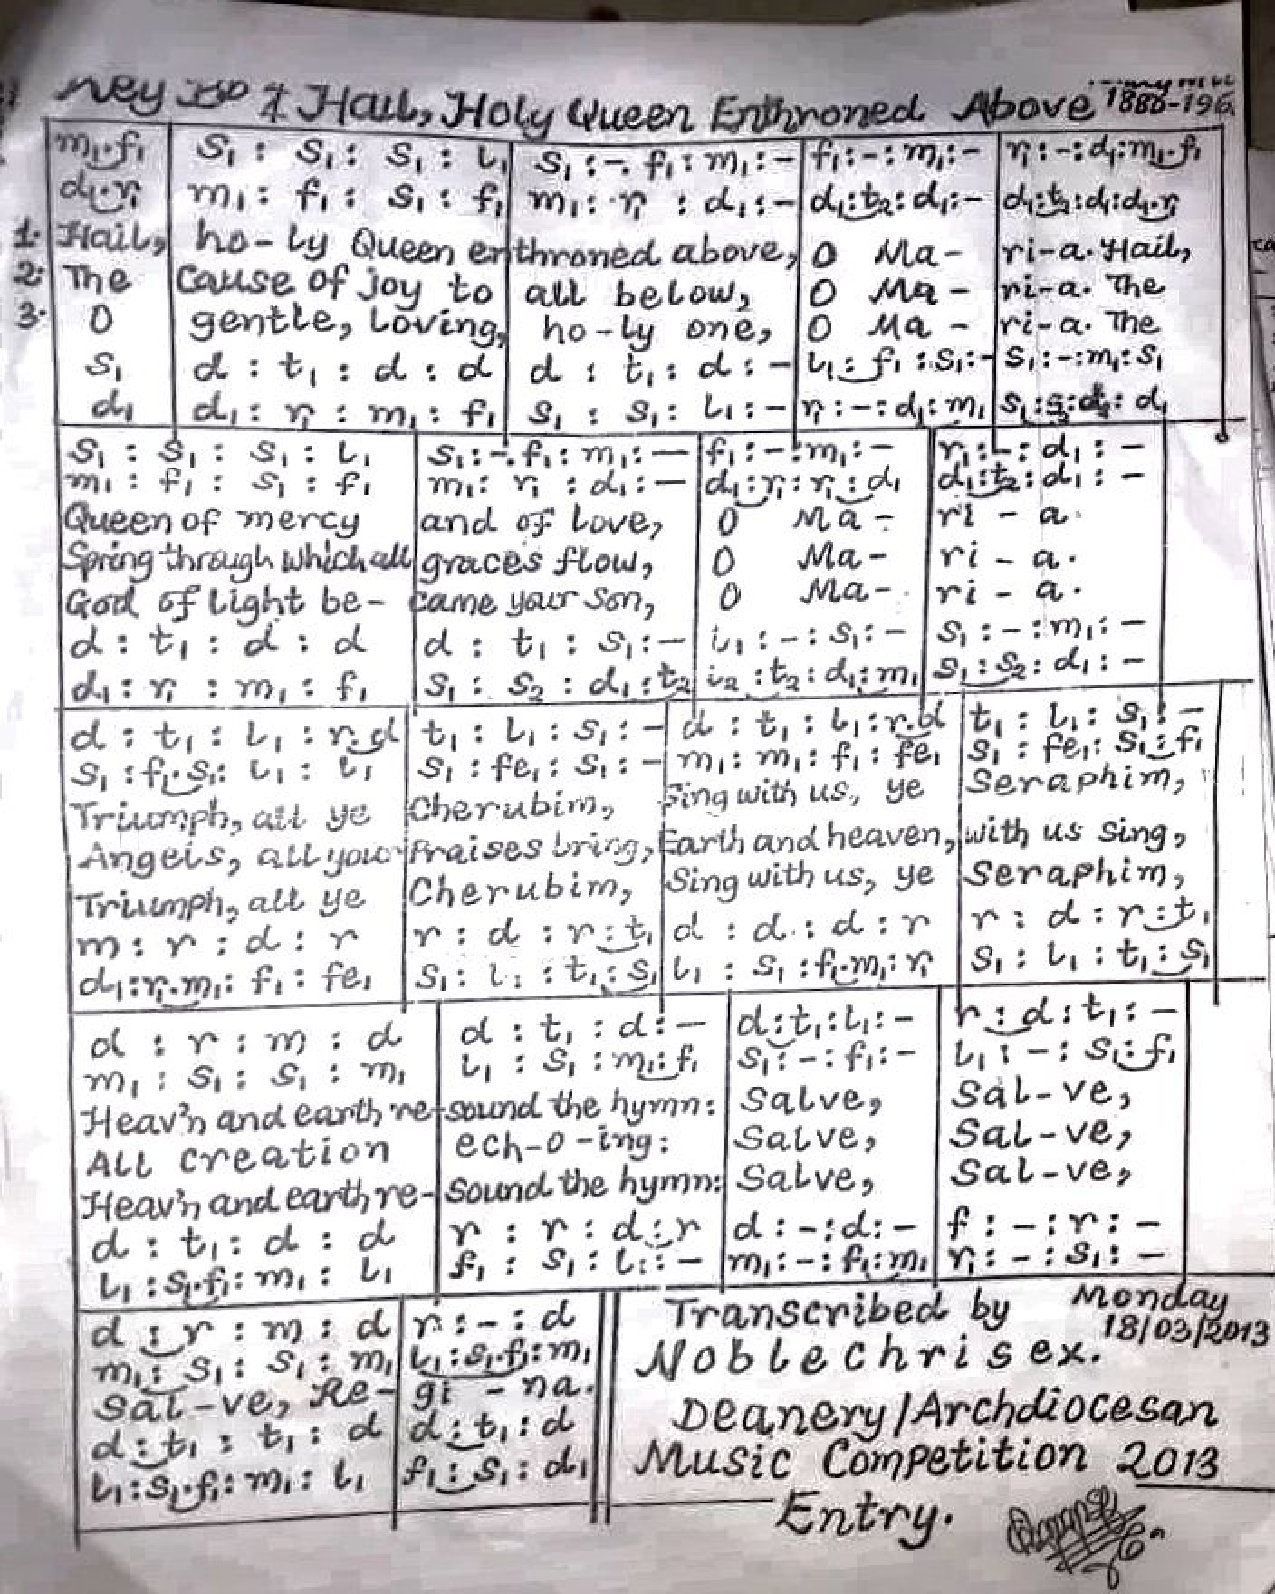 Key Hail, Holy Queen Enthroned Above
m₁.f₁ | s₁ : s₁ : s₁ : l₁ | s₁ :-. f₁ : m₁ :- | f₁ :- : m₁ :- | r₁ :- : d₁ : m₁.f₁
d₁.r₁ | m₁ : f₁ : s₁ : f₁ | m₁ : r₁ : d₁ :- | d₁ : t₂ : d₁ :- | d₁ : t₂ : d₁ : d₁.r₁
1. Hail, | ho-ly Queen enthroned above, | O Ma- | ri-a. Hail,
2. The | Cause of joy to | all below, | O Ma- | ri-a. The
3. O | gentle, loving, | ho-ly one, | O Ma- | ri-a. The
s₁ | d : t₁ : d : d | d : t₁ : d :- | l₁ : f₁ : s₁ :- | s₁ :- : m₁ : s₁
d₁ | d₁ : r₁ : m₁ : f₁ | s₁ : s₁ : l₁ :- | r₁ :- : d₁ : m₁ | s₁ : d₁
s₁ : s₁ : s₁ : l₁ | s₁ :-. f₁ : m₁ :- | f₁ :- : m₁ :- | r₁ :- : d₁ :-
m₁ : f₁ : s₁ : f₁ | m₁ : r₁ : d₁ :- | d₁ : r₁ : r₁ : d₁ | d₁ : t₂ : d₁ :-
Queen of mercy | and of love, | O Ma- | ri-a.
Spring through which all | graces flow, | O Ma- | ri-a.
God of light be- | came your Son, | O Ma- | ri-a.
d : t₁ : d : d | d : t₁ : s₁ :- | l₁ :- : s₁ :- | s₁ :- : m₁ :-
d₁ : r₁ : m₁ : f₁ | s₁ : s₂ : d₁ : t₂ | l₂ : t₂ : d₁ : m₁ | s₁ : s₂ : d₁ :-
d : t₁ : l₁ : r.d | t₁ : l₁ : s₁ :- | d : t₁ : l₁ : r.d | t₁ : l₁ : s₁ :-
s₁ : f₁.s₁ : l₁ : l₁ | s₁ : fe₁ : s₁ :- | m₁ : m₁ : f₁ : fe₁ | s₁ : fe₁ : s₁ : f₁
Triumph, all ye | Cherubim, | Sing with us, ye | Seraphim,
Angels, all your | Praises bring, | Earth and heaven, | with us sing,
Triumph, all ye | Cherubim, | Sing with us, ye | Seraphim,
m : r : d : r | r : d : r : t₁ | d : d : d : r | r : d : r : t₁
d₁ : r₁.m₁ : f₁ : fe₁ | s₁ : l₁ : t₁ : s₁ | l₁ : s₁ : f₁.m₁ : r₁ | s₁ : l₁ : t₁ : s₁
d : r : m : d | d : t₁ : d :- | d : t₁ : l₁ :- | r : d : t₁ :-
m₁ : s₁ : s₁ : m₁ | l₁ : s₁ : m₁ : f₁ | s₁ :- : f₁ :- | l₁ :- : s₁ : f₁
Heav'n and earth re- | sound the hymn: | Salve, | Sal-ve,
All creation | ech-o-ing: | Salve, | Sal-ve,
Heav'n and earth re- | sound the hymn: | Salve, | Sal-ve,
d : t₁ : d : d | r : r : d : r | d :- : d :- | f :- : r :-
l₁ : s₁.f₁ : m₁ : l₁ | f₁ : s₁ : l₁ :- | m₁ :- : f₁ : m₁ | r₁ :- : s₁ :-
d : r : m : d | r :- : d
m₁ : s₁ : s₁ : m₁ | l₁ : s₁.f₁ : m₁
Sal-ve, Re- | gi-na.
d : t₁ : t₁ : d | d : t₁ : d
l₁ : s₁.f₁ : m₁ : l₁ | f₁ : s₁ : d₁
Transcribed by Monday
18/03/2013
Noblechrisex.
Deanery/Archdiocesan
Music Competition 2013
Entry.